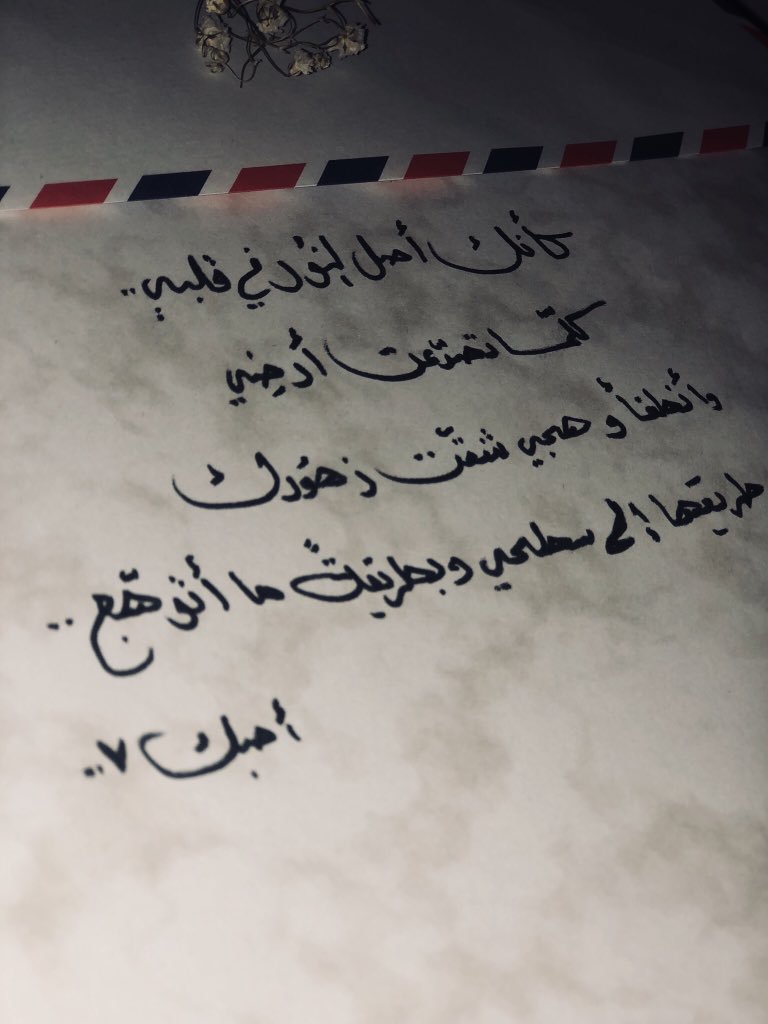 كأنك أصل النؤر في قلبي..
كلّما تصدّعت أرضي
وأنطفأ وهجي شقّت زهورك
طريقها إلى سطحي وبطريقةً ما أتوهّج ..
أحبك ٧..